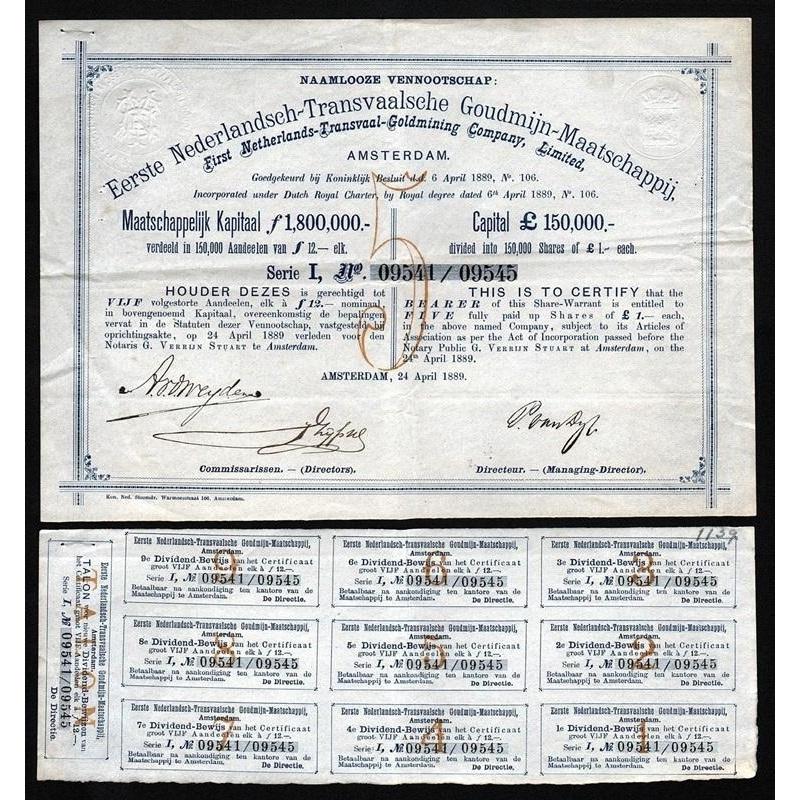 NAAMLOOZE VENNOOTSCHAP:
Eerste Nederlandsch-Transvaalsche Goudmijn-Maatschappij,
First Netherlands-Transvaal-Goldmining Company, Limited,
AMSTERDAM.
Goedgekeurd bij Koninklijk Besluit d.d. 6 April 1889, No. 106.
Incorporated under Dutch Royal Charter, by Royal degree dated 6th April 1889, No. 106.
Maatschappelijk Kapitaal ƒ 1,800,000.-
verdeeld in 150,000 Aandeelen van ƒ 12.— elk.
Capital £ 150,000.-
divided into 150,000 Shares of £ 1.- each.
5
Serie I, No. 09541/09545
HOUDER DEZES is gerechtigd tot
VIJF volgestorte Aandeelen, elk à ƒ 12.— nominaal,
in bovengenoemd Kapitaal, overeenkomstig de bepalingen
vervat in de Statuten dezer Vennootschap, vastgesteld bij
oprichtingsakte, op 24 April 1889 verleden voor den
Notaris G. VERRIJN STUART te Amsterdam.
THIS IS TO CERTIFY that the
BEARER of this Share-Warrant is entitled to
FIVE fully paid up Shares of £ 1.— each,
in the above named Company, subject to its Articles of
Association as per the Act of Incorporation passed before the
Notary Public G. VERRIJN STUART at Amsterdam, on the
24th April 1889.
AMSTERDAM, 24 April 1889.
Commissarissen. — (Directors).
Directeur. — (Managing-Director).
Kon. Ned. Stoomdr. Warmoesstraat 106. Amsterdam.
1139
Eerste Nederlandsch-Transvaalsche Goudmijn-Maatschappij,
Amsterdam.
TALON voor nieuwe Dividend-Bewijzen van
het Certificaat groot VIJF Aandeelen elk à ƒ 12.—.
Serie I, No 09541/09545
De Directie.
Eerste Nederlandsch-Transvaalsche Goudmijn-Maatschappij,
Amsterdam.
9e Dividend-Bewijs van het Certificaat
groot VIJF Aandeelen elk à ƒ 12.—.
Serie I, No 09541/09545
Betaalbaar na aankondiging ten kantore van de
Maatschappij te Amsterdam. De Directie.
9
Eerste Nederlandsch-Transvaalsche Goudmijn-Maatschappij,
Amsterdam.
6e Dividend-Bewijs van het Certificaat
groot VIJF Aandeelen elk à ƒ 12.—.
Serie I, No 09541/09545
Betaalbaar na aankondiging ten kantore van de
Maatschappij te Amsterdam. De Directie.
6
Eerste Nederlandsch-Transvaalsche Goudmijn-Maatschappij,
Amsterdam.
3e Dividend-Bewijs van het Certificaat
groot VIJF Aandeelen elk à ƒ 12.—.
Serie I, No 09541/09545
Betaalbaar na aankondiging ten kantore van de
Maatschappij te Amsterdam. De Directie.
3
Eerste Nederlandsch-Transvaalsche Goudmijn-Maatschappij,
Amsterdam.
8e Dividend-Bewijs van het Certificaat
groot VIJF Aandeelen elk à ƒ 12.—.
Serie I, No 09541/09545
Betaalbaar na aankondiging ten kantore van de
Maatschappij te Amsterdam. De Directie.
8
Eerste Nederlandsch-Transvaalsche Goudmijn-Maatschappij,
Amsterdam.
5e Dividend-Bewijs van het Certificaat
groot VIJF Aandeelen elk à ƒ 12.—.
Serie I, No 09541/09545
Betaalbaar na aankondiging ten kantore van de
Maatschappij te Amsterdam. De Directie.
5
Eerste Nederlandsch-Transvaalsche Goudmijn-Maatschappij,
Amsterdam.
2e Dividend-Bewijs van het Certificaat
groot VIJF Aandeelen elk à ƒ 12.—.
Serie I, No 09541/09545
Betaalbaar na aankondiging ten kantore van de
Maatschappij te Amsterdam. De Directie.
2
Eerste Nederlandsch-Transvaalsche Goudmijn-Maatschappij,
Amsterdam.
7e Dividend-Bewijs van het Certificaat
groot VIJF Aandeelen elk à ƒ 12.—.
Serie I, No 09541/09545
Betaalbaar na aankondiging ten kantore van de
Maatschappij te Amsterdam. De Directie.
7
Eerste Nederlandsch-Transvaalsche Goudmijn-Maatschappij,
Amsterdam.
4e Dividend-Bewijs van het Certificaat
groot VIJF Aandeelen elk à ƒ 12.—.
Serie I, No 09541/09545
Betaalbaar na aankondiging ten kantore van de
Maatschappij te Amsterdam. De Directie.
4
Eerste Nederlandsch-Transvaalsche Goudmijn-Maatschappij,
Amsterdam.
1e Dividend-Bewijs van het Certificaat
groot VIJF Aandeelen elk à ƒ 12.—.
Serie I, No 09541/09545
Betaalbaar na aankondiging ten kantore van de
Maatschappij te Amsterdam. De Directie.
1